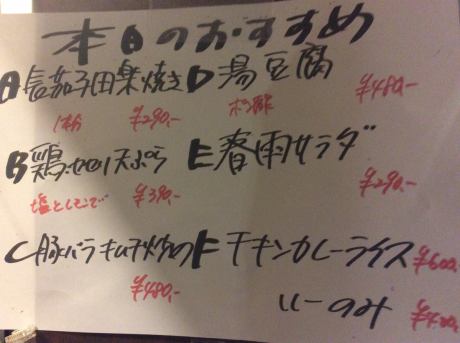 本日のおすすめ
A 長茄子田楽焼き
1本 ¥290.-
B 鶏せせり天ぷら
塩としそで ¥390.-
C 豚バラキムチ焼の
¥480.-
D 湯豆腐
ポン酢 ¥480.-
E 春雨サラダ
¥290.-
F チキンカレーライス ¥600.-
ルーのみ ¥400.-